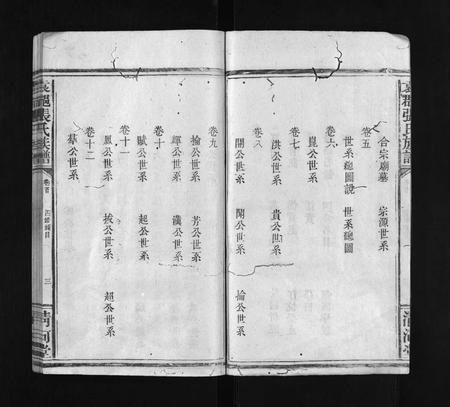 合宗廟墓 宗源世系
卷五
世系總圖說 世系總圖
卷六
崑公世系
卷七
洪公世系 貴公世系
卷八
開公世系 閑公世系 掄公世系
卷九
掄公世系 芳公世系
鐸公世系 漢公世系
卷十
賦公世系 起公世系
卷十一
鳳公世系 拔公世系 超公世系
卷十二
萃公世系
袁郡張氏族譜
卷首
三
清河堂